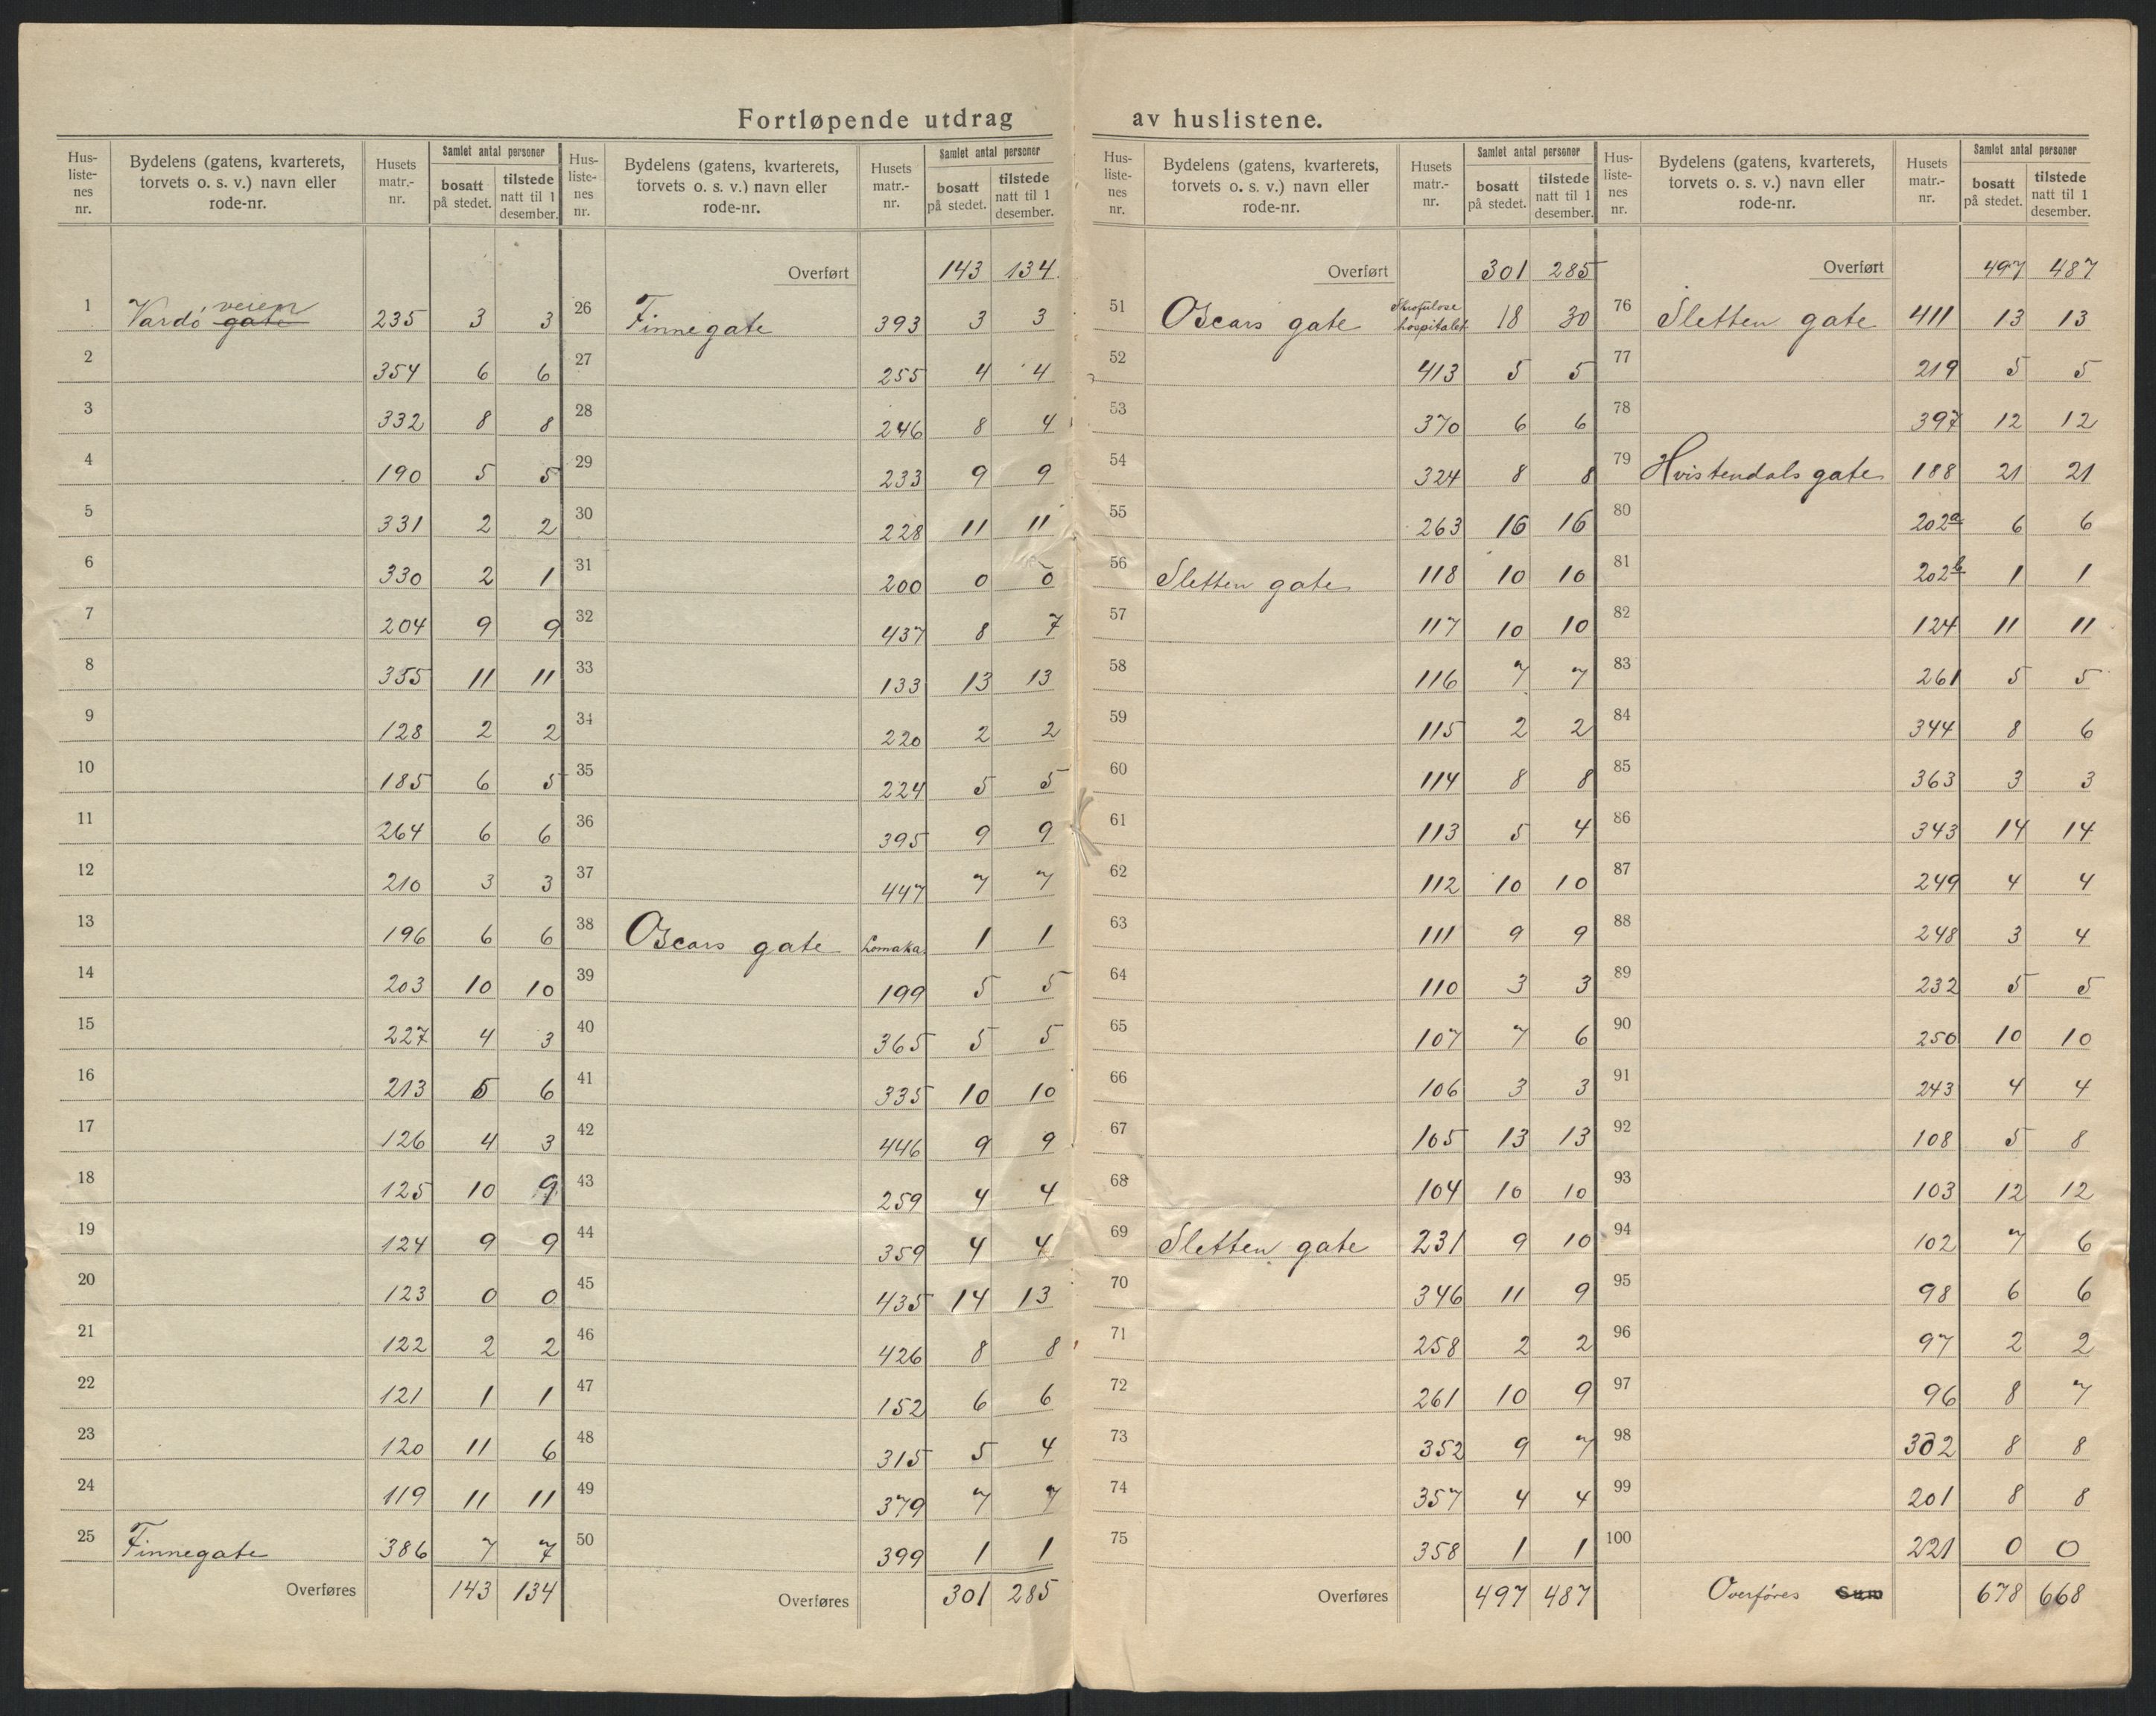 Fortløpende utdrag av huslistene.
Hus-listenes nr. | Bydelens (gatens, kvarterets, torvets o. s. v.) navn eller rode-nr. | Husets matr.-nr. | Samlet antal personer | bosatt på stedet. | tilstede natt til 1 desember.
1 Vardö gate veien 235 3 3
2 354 6 6
3 332 8 8
4 190 5 5
5 331 2 2
6 330 2 1
7 204 9 9
8 355 11 11
9 128 2 2
10 185 6 5
11 264 6 6
12 210 3 3
13 196 6 6
14 203 10 10
15 227 4 3
16 213 5 6
17 126 4 3
18 125 10 9
19 124 9 9
20 123 0 0
21 122 2 2
22 121 1 1
23 120 11 6
24 119 11 11
25 Finnegate 386 7 7
Overføres 143 134
Hus-listenes nr. | Bydelens (gatens, kvarterets, torvets o. s. v.) navn eller rode-nr. | Husets matr.-nr. | Samlet antal personer | bosatt på stedet. | tilstede natt til 1 desember.
Overført 143 134
26 Finnegate 393 3 3
27 255 4 4
28 246 8 4
29 233 9 9
30 228 11 11
31 200 0 0
32 437 8 7
33 133 13 13
34 220 2 2
35 224 5 5
36 395 9 9
37 447 7 7
38 Oscars gate Lomaka 1 1
39 199 5 5
40 365 5 5
41 335 10 10
42 446 9 9
43 259 4 4
44 359 4 4
45 435 14 13
46 426 8 8
47 152 6 6
48 315 5 4
49 379 7 7
50 399 1 1
Overføres 301 285
Hus-listenes nr. | Bydelens (gatens, kvarterets, torvets o. s. v.) navn eller rode-nr. | Husets matr.-nr. | Samlet antal personer | bosatt på stedet. | tilstede natt til 1 desember.
Overført 301 285
51 Oscars gate Skrofulose hospitalet 18 30
52 413 5 5
53 370 6 6
54 324 8 8
55 263 16 16
56 Sletten gate 118 10 10
57 117 10 10
58 116 7 7
59 115 2 2
60 114 8 8
61 113 5 4
62 112 10 10
63 111 9 9
64 110 3 3
65 107 7 6
66 106 3 3
67 105 13 13
68 104 10 10
69 Sletten gate 231 9 10
70 346 11 9
71 258 2 2
72 261 10 9
73 352 9 7
74 357 4 4
75 358 1 1
Overføres 497 487
Hus-listenes nr. | Bydelens (gatens, kvarterets, torvets o. s. v.) navn eller rode-nr. | Husets matr.-nr. | Samlet antal personer | bosatt på stedet. | tilstede natt til 1 desember.
Overført 497 487
76 Sletten gate 411 13 13
77 219 5 5
78 397 12 12
79 Hvistendals gate 188 21 21
80 202a 6 6
81 202b 1 1
82 124 11 11
83 261 5 5
84 344 8 6
85 363 3 3
86 343 14 14
87 249 4 4
88 248 3 4
89 232 5 5
90 250 10 10
91 243 4 4
92 108 5 8
93 103 12 12
94 102 7 6
95 98 6 6
96 97 2 2
97 96 8 7
98 302 8 8
99 201 8 8
100 221 0 0
Overføres Sum 678 668